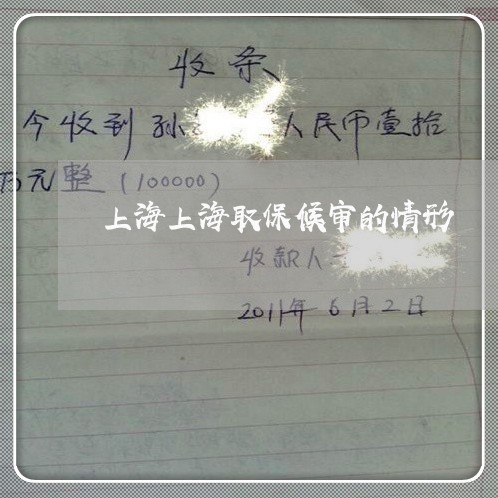 收条
今收到孙 人民币壹拾
万元整（100000）
上海上海取保候审的情形
收款人
2011年6月2日